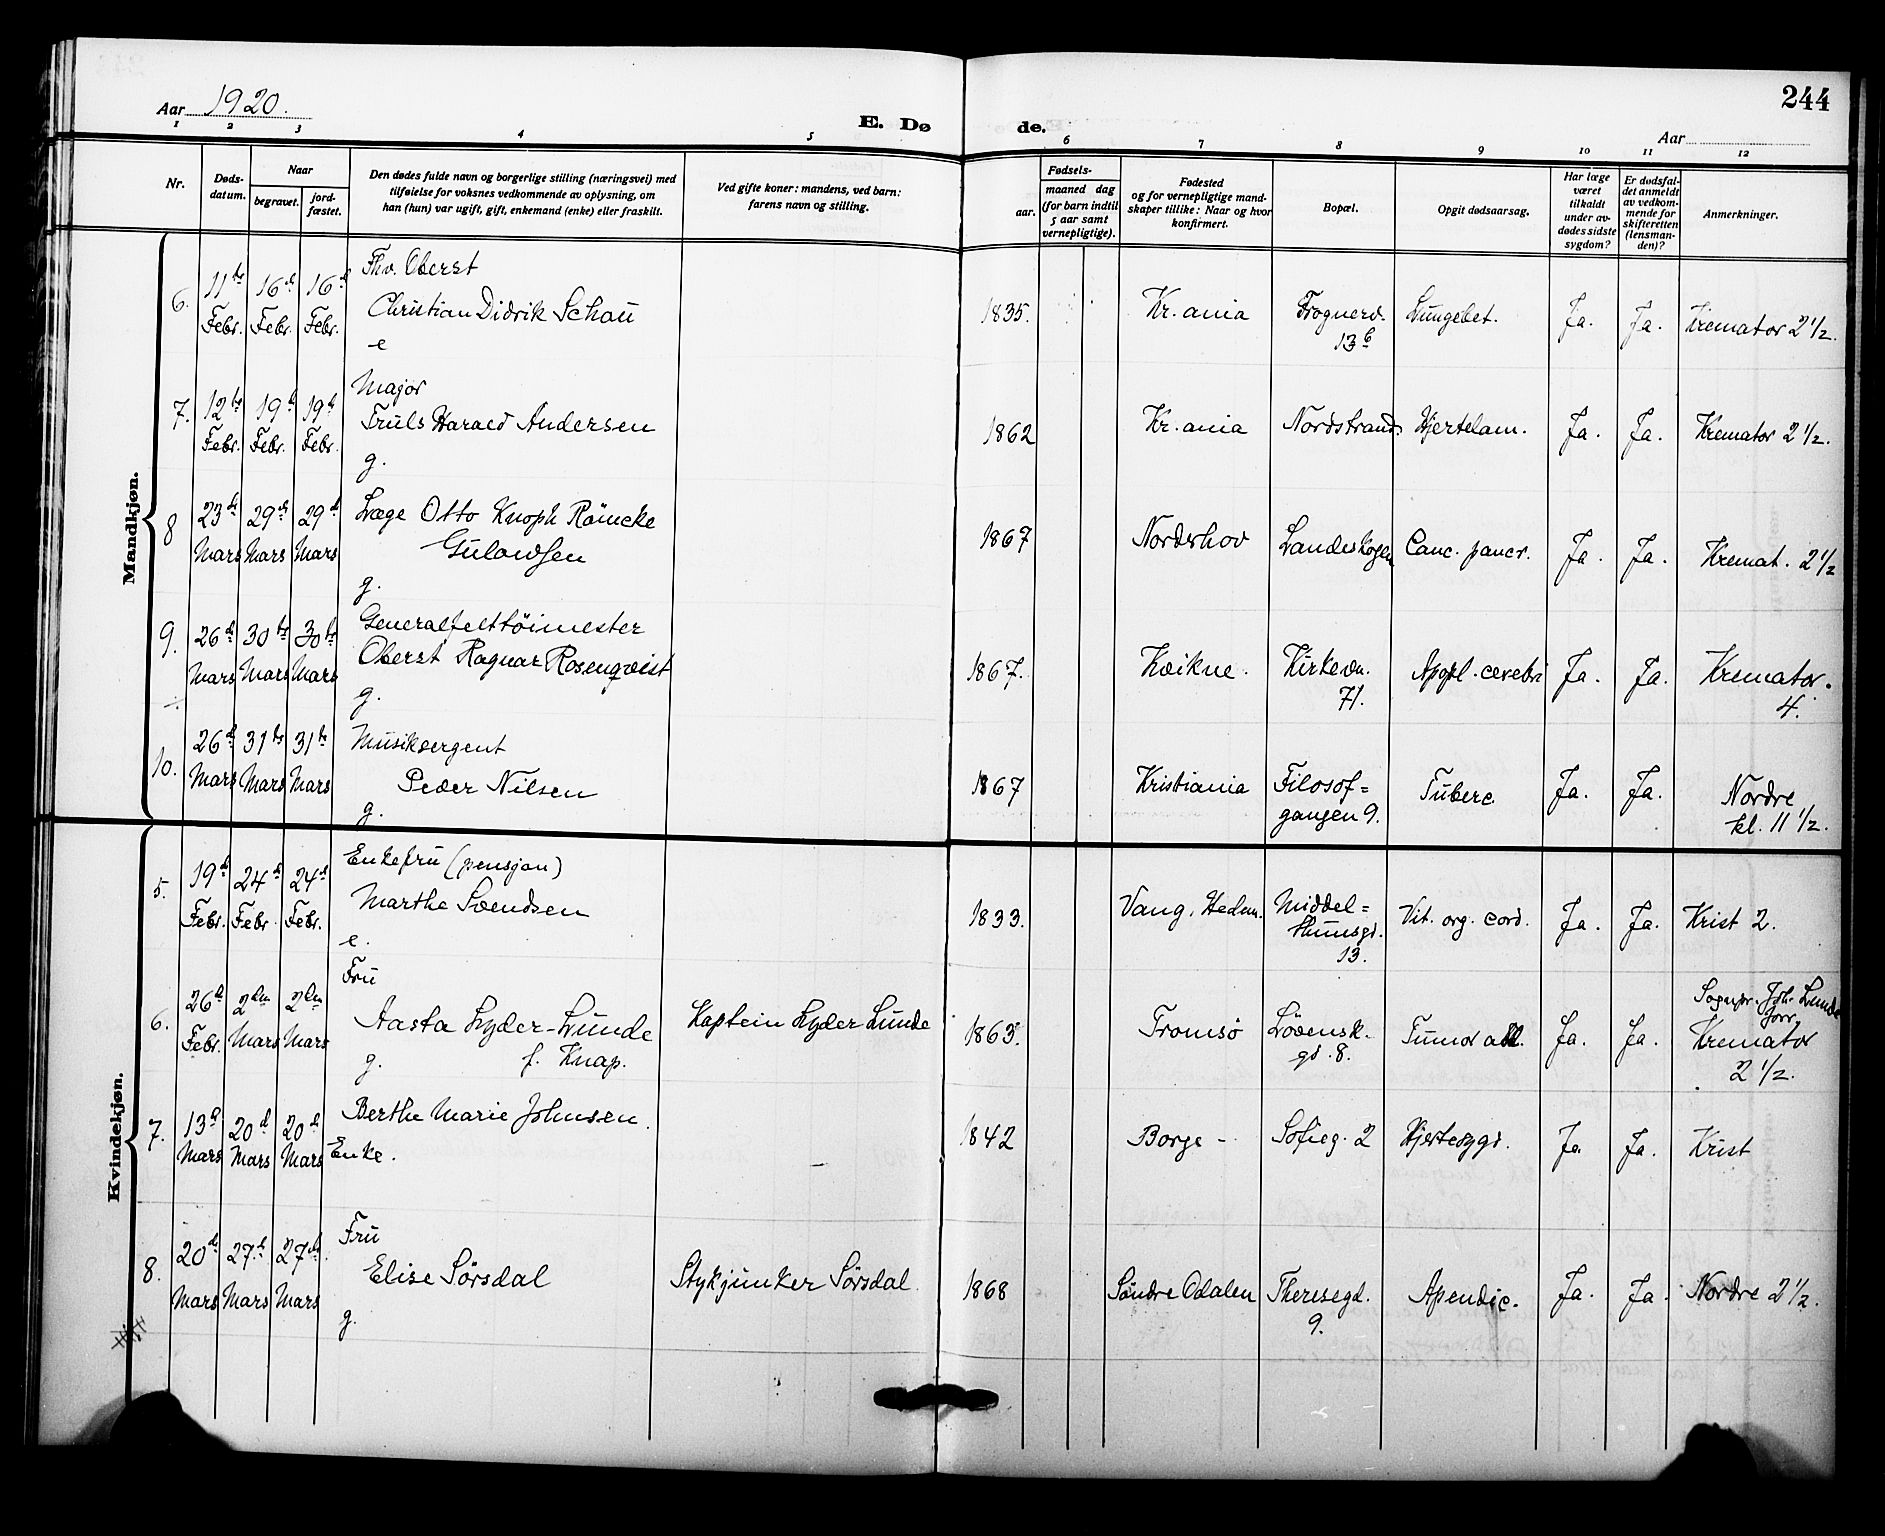 244
Aar 1920.
E. Døde.
Aar
1 2 3 4 5 6 7 8 9 10 11 12
Nr.
Døds-
datum.
Naar
begravet.
jord-
fæstet.
Den dødes fulde navn og borgerlige stilling (næringsvei) med
tilføielse for voksnes vedkommende av oplysning, om
han (hun) var ugift, gift, enkemand (enke) eller fraskilt.
Ved gifte koner: mandens, ved barn:
farens navn og stilling.
Fødsels-
aar.
maaned dag
(for barn indtil
5 aar samt
vernepligtige).
Fødested
og for vernepligtige mand-
skaper tillike: Naar og hvor
konfirmert.
Bopæl.
Opgit dødsaarsag.
Har læge
været
tilkaldt
under av-
dødes sidste
sygdom?
Er dødsfal-
det anmeldt
av vedkom-
mende for
skifteretten
(lensman-
den)?
Anmerkninger.
Mandkjøn.
6. 11te Febr. 16de Febr. 16de Febr.
Fhv. Oberst
Christian Didrik Schou
e
1835. Kr.ania Frognerv. 13b Lungebet. Ja. Ja. Kremator 2 1/2.
7. 12te Febr. 19de Febr. 19de Febr.
Major
Truls Harald Andersen
g.
1862 Kr.ania Nordstrand. Hjertelam. Ja. Ja. Kremator 2 1/2.
8 23de Mars 29de Mars 29de Mars
Læge Otto Knoph Römcke
Gulowsen
g.
1867 Norderhov Landeskogen Canc. pancr. Ja. Ja. Kremat. 2 1/2
9. 26de Mars 30te Mars 30te Mars
Generalfelttöimester
Oberst Ragnar Rosenqvist
g.
1867. Kvikne. Kirkevn. 71. Apopl. cerebri Ja. Ja. Kremator. 4.
10. 26de Mars 31te Mars 31te Mars
Musiksergent
Peder Nilsen
g.
1867 Kristiania Filosof=
gangen 9. Tuberc. Ja. Ja. Nordre
kl. 11 1/2.
Kvindekjøn.
5. 19de Febr. 24de Febr. 24de Febr.
Enkefru (pensjon)
Marthe Svendsen
e.
1833. Vang, Hedm. Middel=
thunsgd.
13. Vit. org. cord. Ja. Ja. Krist 2.
6. 26de Febr. 2den Mars 2den Mars
Fru
Aasta Lyder-Lunde
g. f. Knap.
Kaptein Lyder Lunde
1863. Tromsö Lövensk.
gd. 8. Tumor abd. Ja. Ja. Sognepr. Joh. Lunde
forr.
Kremator
2 1/2.
7. 13de Mars 20de Mars 20de Mars
Berthe Marie Johnsen.
Enke.
1842 Borge - Sofieg. 2 Hjertesygd. Ja. Ja. Krist
8. 20de Mars 27de Mars 27de Mars
Fru
Elise Sörsdal
g.
Stykjunker Sörsdal.
1868 Söndre Odalen Theresegd.
9. Apendic. Ja. Ja. Nordre 2 1/2.